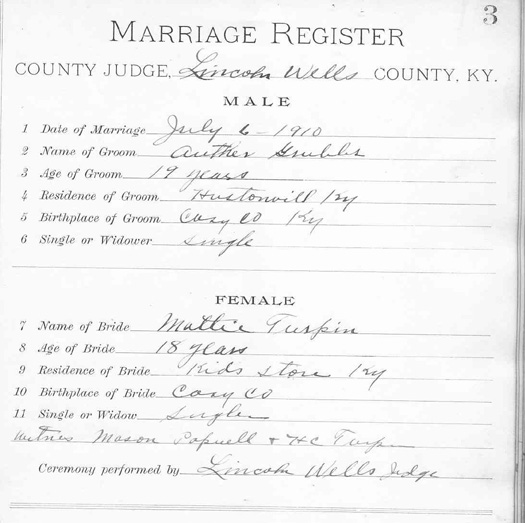 3
MARRIAGE REGISTER
COUNTY JUDGE, Lincoln Wells COUNTY, KY.
MALE
1 Date of Marriage July 6 - 1910
2 Name of Groom Auther Grubbs
3 Age of Groom 19 years
4 Residence of Groom Hustonvill Ky
5 Birthplace of Groom Casy Co Ky
6 Single or Widower Single
FEMALE
7 Name of Bride Mattie Turpin
8 Age of Bride 18 years
9 Residence of Bride Kids Store Ky
10 Birthplace of Bride Casy Co
11 Single or Widow Single
Witness Mason & H C Turpin
Ceremony performed by Lincoln Wells Judge